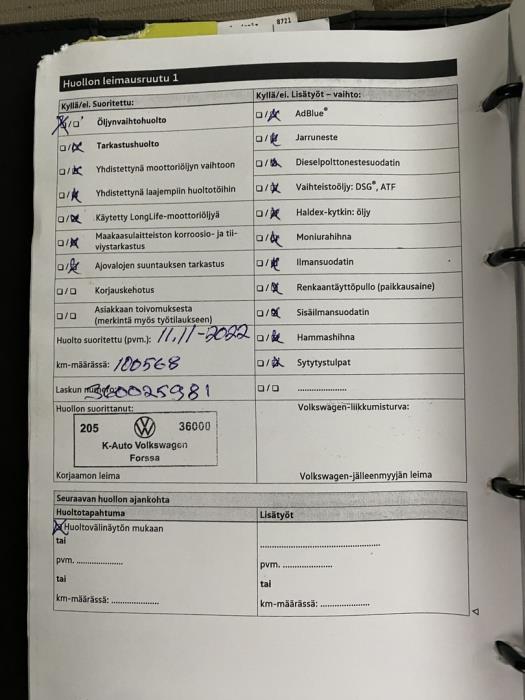 8721
Huollon leimausruutu 1
Kyllä/ei. Suoritettu:
Öljynvaihtohuolto
Tarkastushuolto
Yhdistettynä moottoriöljyn vaihtoon
Yhdistettynä laajempiin huoltotöihin
Käytetty LongLife-moottoriöljyä
Maakaasulaitteiston korroosio- ja tii-
viystarkastus
Ajovalojen suuntauksen tarkastus
Korjauskehotus
Asiakkaan toivomuksesta
(merkintä myös työtilaukseen)
Huolto suoritettu (pvm.): 11.11-2022
km-määrässä: 100568
Laskun 360025981
Huollon suorittanut:
205 36000
K-Auto Volkswagen
Forssa
Korjaamon leima
Kyllä/ei. Lisätyöt – vaihto:
AdBlue®
Jarruneste
Dieselpolttonestesuodatin
Vaihteistoöljy: DSG®, ATF
Haldex-kytkin: öljy
Moniurahihna
Ilmansuodatin
Renkaantäyttöpullo (paikkausaine)
Sisäilmansuodatin
Hammashihna
Sytytystulpat
Volkswagen-liikkumisturva:
Volkswagen-jälleenmyyjän leima
Seuraavan huollon ajankohta
Huoltotapahtuma
Huoltovälinäytön mukaan
tai
pvm. ....................
tai
km-määrässä: ....................
Lisätyöt
pvm. ....................
tai
km-määrässä: ....................